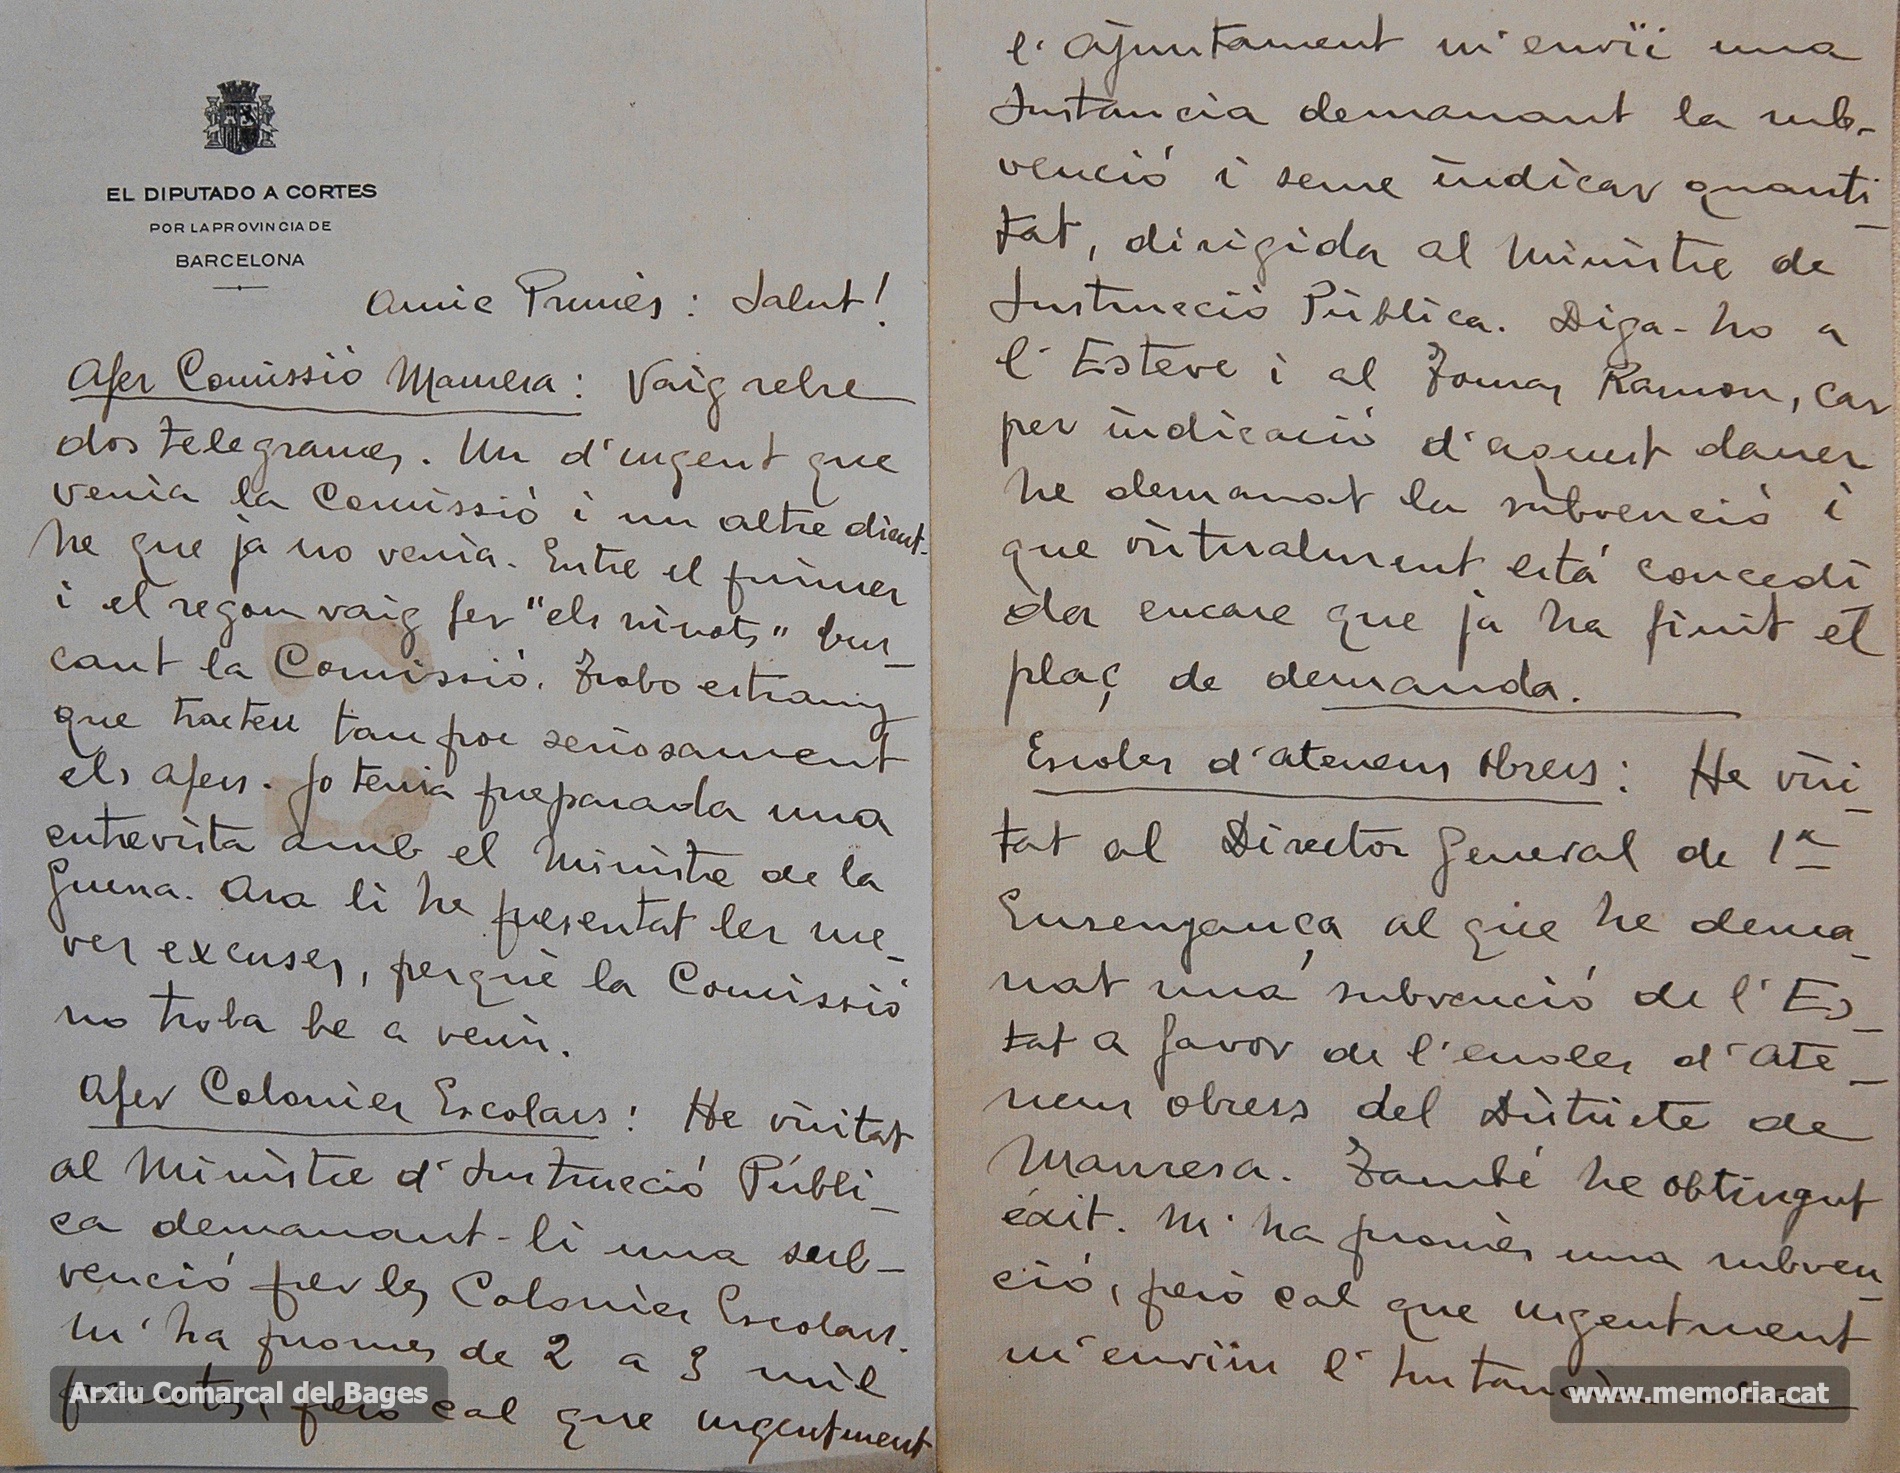 EL DIPUTADO A CORTES
POR LA PROVINCIA DE
BARCELONA
Amic Prunés: Salut!
Afer Comissió Manresa: Vaig rebre
dos telegrames. Un d'urgent que
venia la Comissió i un altre dient-
he que ja no venia. Entre el primer
i el segon vaig fer "els ninots" bus-
cant la Comissió. Trobo estrany
que tracteu tan poc seriosament
els afers. Jo tenia preparada una
entrevista amb el Ministre de la
Guerra. Ara li he presentat les me-
ves excuses, perquè la Comissió
no troba be a venir.
Afer Colonies Escolars: He visitat
al Ministre d'Instrucció Públi-
ca demanant-li una sub-
venció per les Colonies Escolars.
M'ha promes de 2 a 3 mil
pessetes, però cal que urgentment
l'Ajuntament m'envïi una
Instancia demanant la sub-
venció i sense indicar quanti-
tat, dirigida al Ministre de
Instrucció Pública. Diga-ho a
l'Esteve i al Tomas Ramon, car
per indicació d'aquest darrer
he demanat la subvenció i
que virtualment està concedi
da encare que ja ha finit el
plaç de demanda.
Escoles d'ateneus obrers: He visi-
tat al Director General de 1ª
Ensenyança al que he dema-
nat una subvenció de l'Es-
tat a favor de l'escoles d'Ate-
neus obrers del Districte de
Manresa. També he obtingut
éxit. M'ha promès una subven-
ció, però cal que urgentment
m'envïin l'Instancia
Arxiu Comarcal del Bages
www.memoria.cat